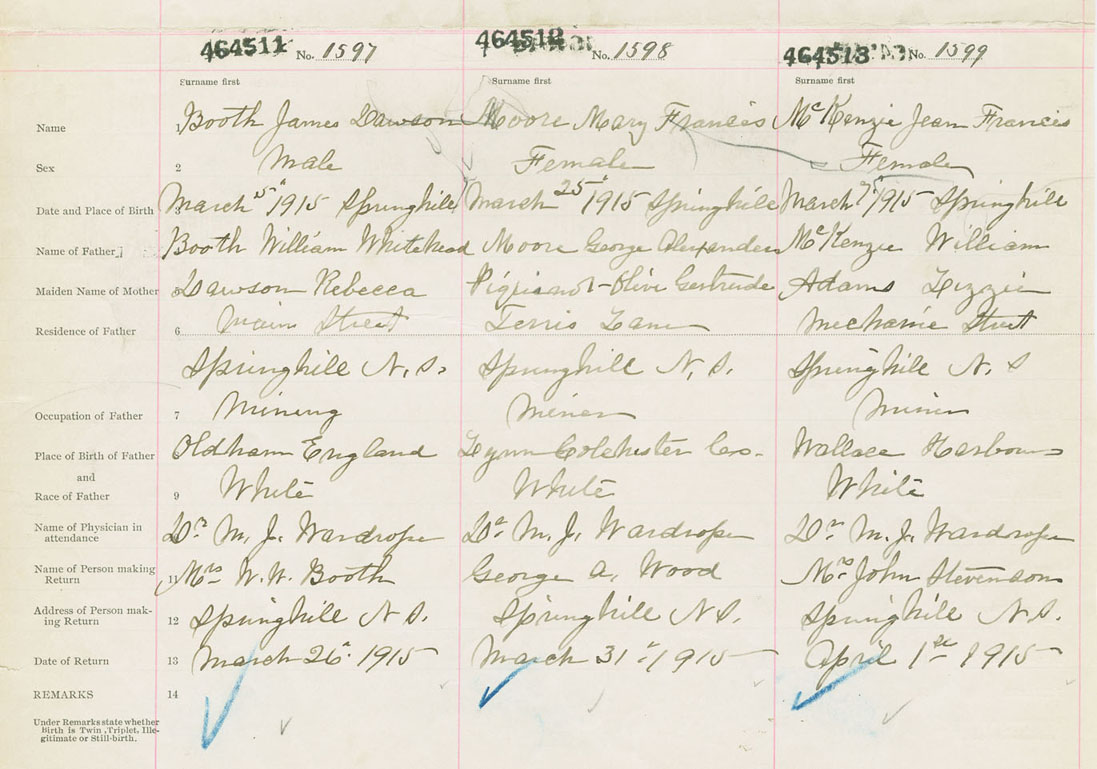 464511 No. 1597 464512 No. 1598 464513 No. 1599
Surname first Surname first Surname first
Name 1 Booth James Dawson Moore Mary Francis McKenzie Jean Francis
Sex 2 Male Female Female
Date and Place of Birth 3 March 15" 1915 Springhill March 25" 1915 Springhill March 7" 1915 Springhill
Name of Father Booth William Whitehead Moore George Alexander McKenzie William
Maiden Name of Mother 5 Dawson Rebecca Olive Gertrude Adams Lizzie
Residence of Father 6 Main Street Terris Lane Mechanic Street
Springhill N.S. Springhill N.S. Springhill N.S
Occupation of Father 7 Mining Miner Miner
Place of Birth of Father Oldham England Lynn Colchester Co. Wallace Harbour
and
Race of Father 9 White White White
Name of Physician in attendance Dr. M. J. Wardrope Dr. M. J. Wardrope Dr. M. J. Wardrope
Name of Person making Return 11 Mrs W. W. Booth George A. Wood Mrs John Stevenson
Address of Person mak-
ing Return 12 Springhill N S. Springhill N S. Springhill N S.
Date of Return 13 March 26" 1915 March 31" 1915 April 1st 1915
REMARKS 14
Under Remarks state whether
Birth is Twin, Triplet, Ille-
gitimate or Still-birth.